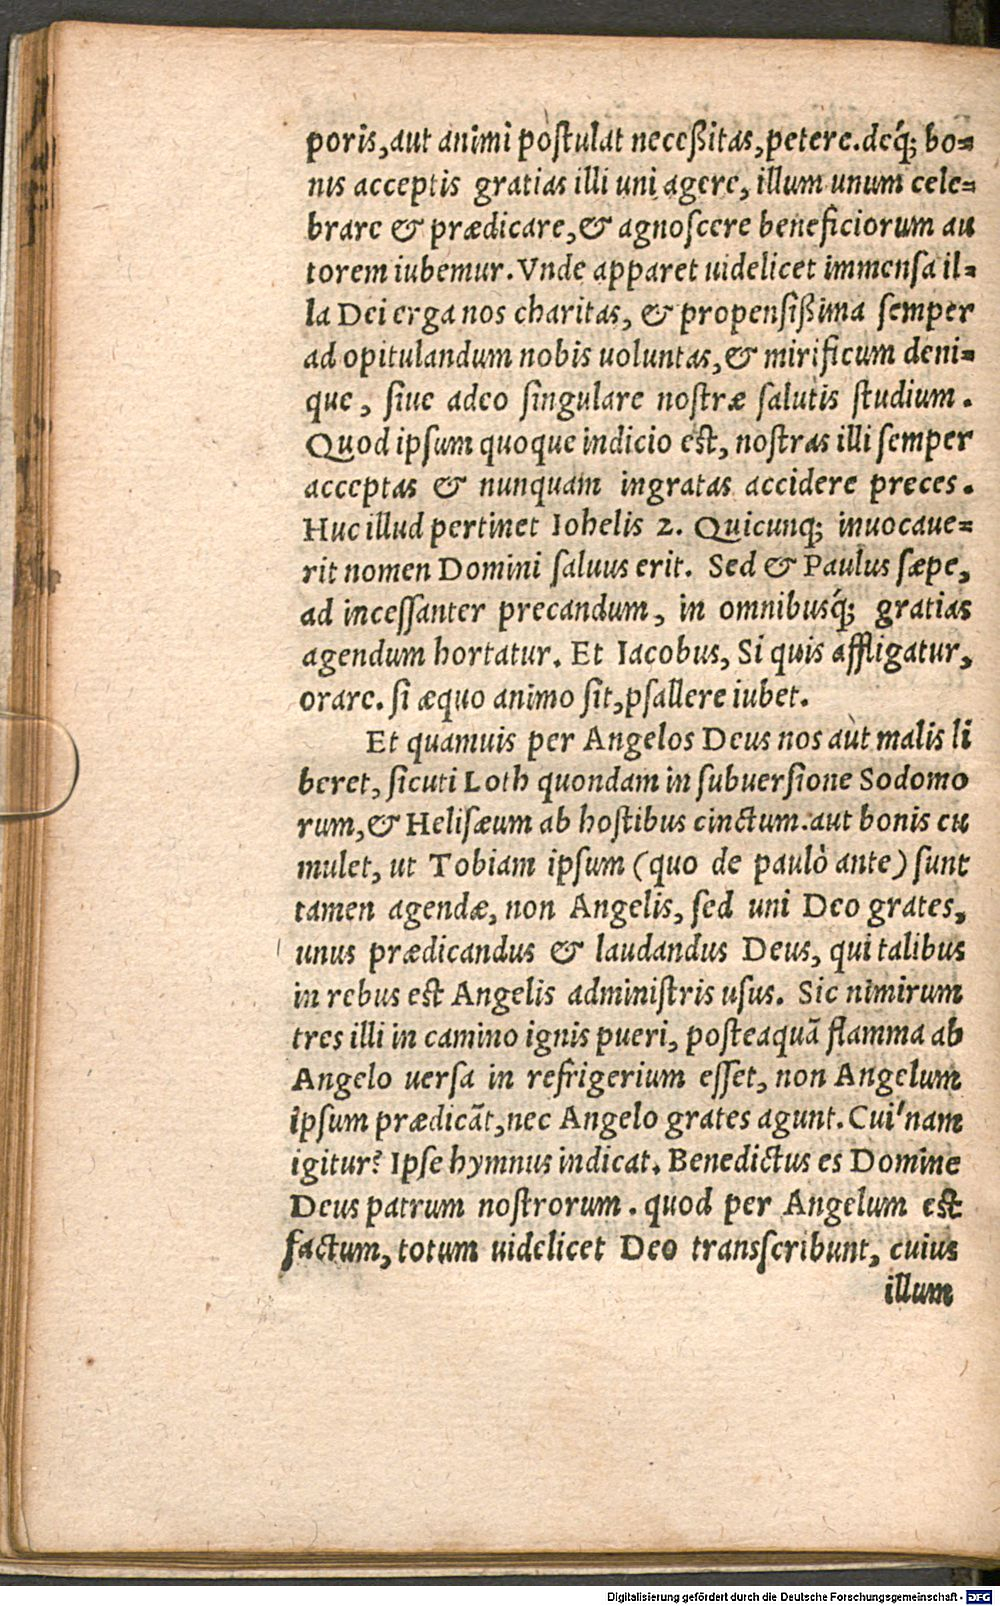 poris, aut animi postulat neceßitas, petere. deq́; bo-
nis acceptis gratias illi uni agere, illum unum cele-
brare & prædicare, & agnoscere beneficiorum au
torem iubemur. Vnde apparet uidelicet immensa il-
la Dei erga nos charitas, & propensißima semper
ad opitulandum nobis uoluntas, & mirificum deni-
que, siue adeo singulare nostræ salutis studium.
Quod ipsum quoque indicio est, nostras illi semper
acceptas & nunquam ingratas accidere preces.
Huc illud pertinet Iohelis 2. Quicunq; inuocaue-
rit nomen Domini saluus erit. Sed & Paulus sæpe,
ad incessanter precandum, in omnibusq́; gratias
agendum hortatur. Et Iacobus, Si quis affligatur,
orare. si æquo animo sit, psallere iubet.
Et quamuis per Angelos Deus nos aùt malis li
beret, sicuti Loth quondam in subuersione Sodomo
rum, & Helisæum ab hostibus cinctum. aut bonis cu
mulet, ut Tobiam ipsum (quo de paulò ante) sunt
tamen agendæ, non Angelis, sed uni Deo grates,
unus prædicandus & laudandus Deus, qui talibus
in rebus est Angelis administris usus. Sic nimirum
tres illi in camino ignis pueri, posteaquã flamma ab
Angelo uersa in refrigerium esset, non Angelum
ipsum prædicãt, nec Angelo grates agunt. Cui'nam
igitur? Ipse hymnus indicat. Benedictus es Domine
Deus patrum nostrorum. quod per Angelum est
factum, totum uidelicet Deo transscribunt, cuius
illum
Digitalisierung gefördert durch die Deutsche Forschungsgemeinschaft - DFG